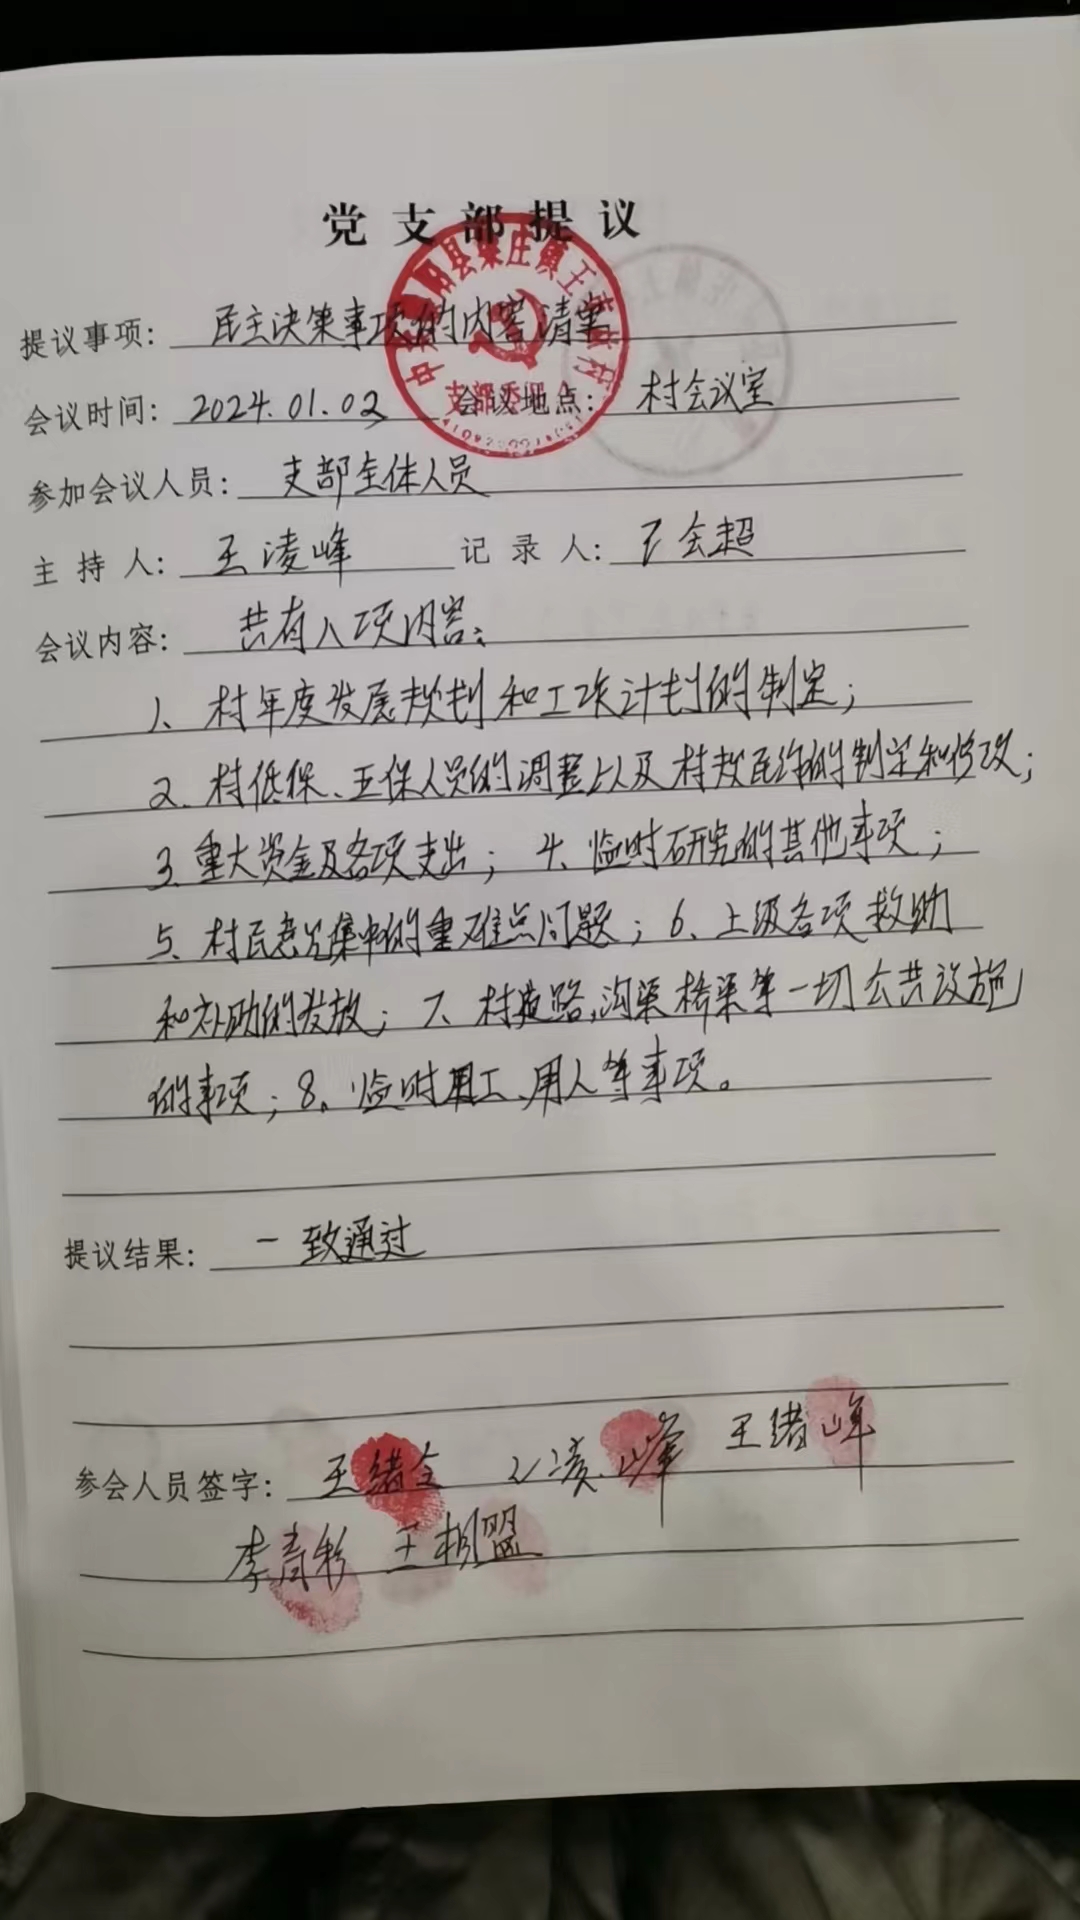 党支部提议
提议事项: 民主决策事项的内容清单
会议时间: 2024.01.02 会议地点: 村会议室
参加会议人员: 支部全体人员
主持人: 王凌峰 记录人: 王会超
会议内容: 共有八项内容:
1、村年度发展规划和工作计划的制定;
2、村低保、五保人员的调整以及村规民约的制定和修改;
3、重大资金及各项支出; 4、临时研究的其他事项;
5、村民意见集中的重难点问题; 6、上级各项救助
和补助的发放; 7、村道路,沟渠桥渠等一切公共设施
的事项; 8、临时用工、用人等事项。
提议结果: 一致通过
参会人员签字: 王绪全 王凌峰 王绪峰
李青彩 王相盟
支部委员会